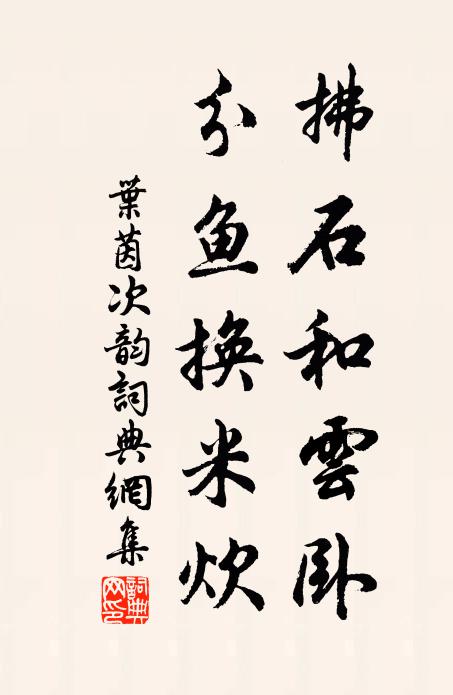 拂石和雲卧
分鱼换米炊
葉茵次韵詞典網集
詞典网印